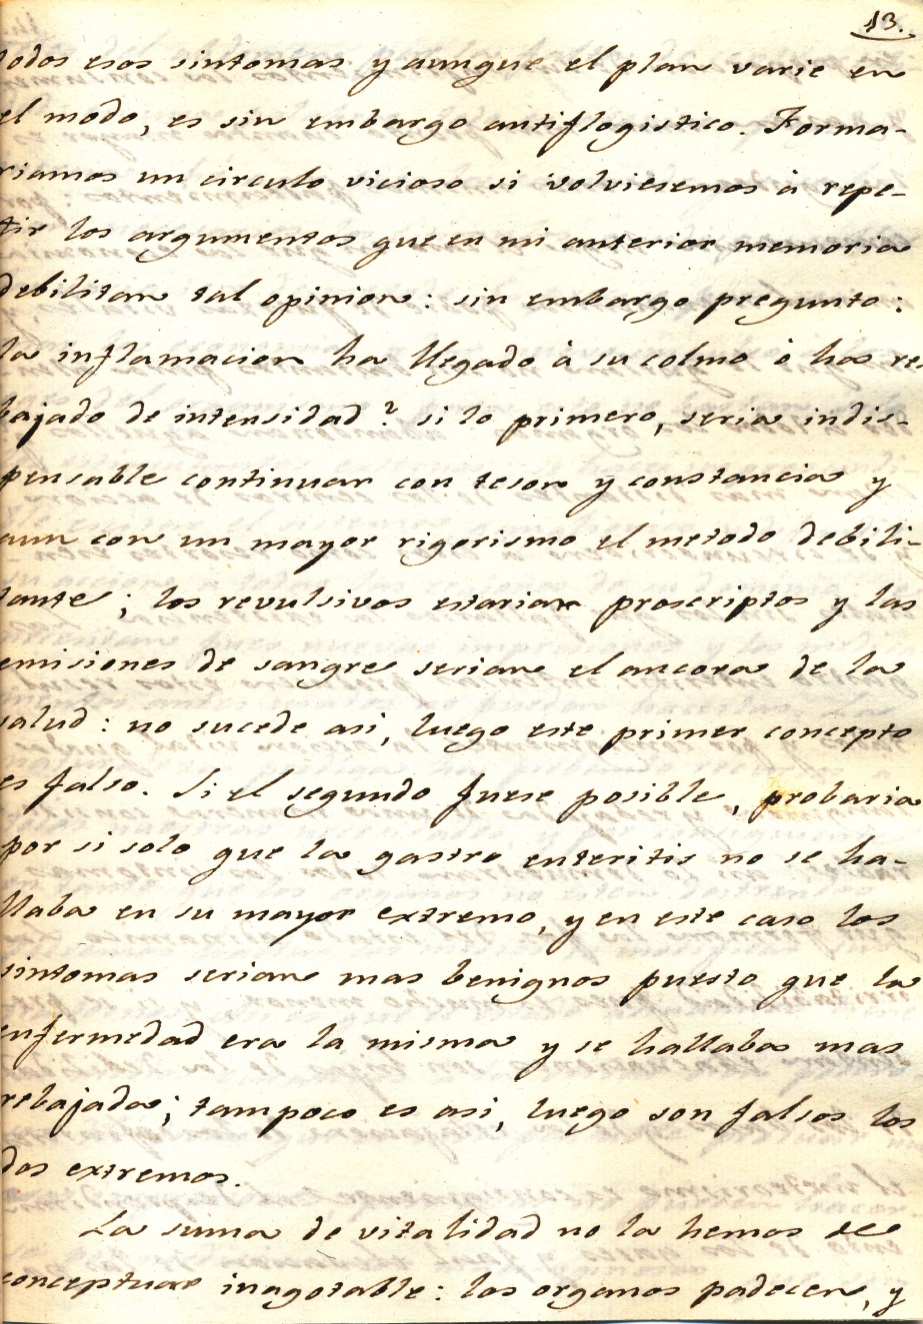 13.
todos esos sintomas y aunque el plan varie en
el modo, es sin embargo antiflogistico. Forma-
riamos un circulo vicioso si volviesemos á repe-
tir los argumentos que en mi anterior memoria
debilitan tal opinion: sin embargo pregunto:
la inflamacion ha llegado á su colmo ó ha re-
bajado de intensidad? si lo primero, seria indis-
pensable continuar con teson y constancia y
aun con un mayor rigorismo el metodo debili-
tante; los revulsivos estarian proscriptos y las
emisiones de sangre serian el ancora de la
salud: no sucede asi, luego este primer concepto
es falso. Si el segundo fuese posible, probaria
por si solo que la gastro enteritis no se ha-
llaba en su mayor extremo, y en este caso los
sintomas serian mas benignos puesto que la
enfermedad era la misma y se hallaba mas
rebajada; tampoco es asi, luego son falsos los
dos extremos.
La suma de vitalidad no la hemos de
conceptuar inagotable: los organos padecen, y